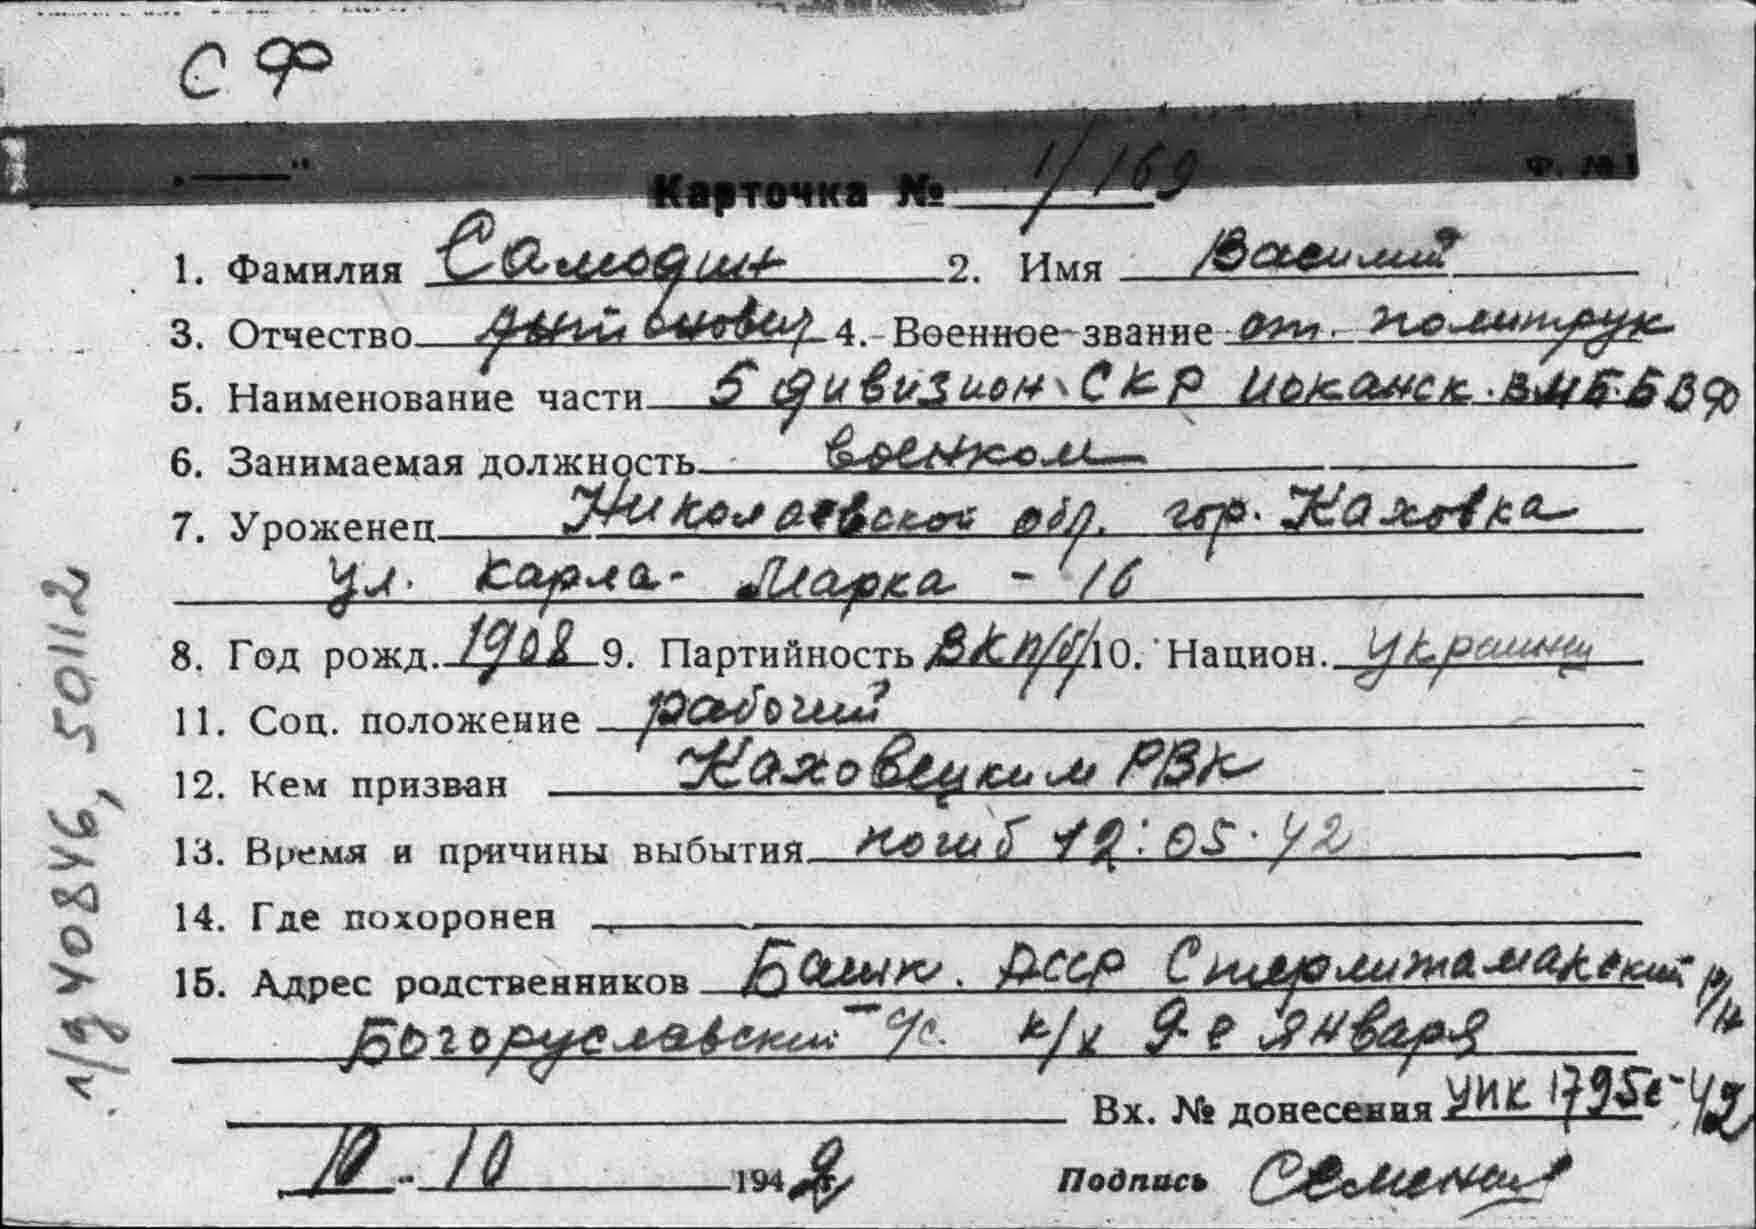 С Ф
„——“
Ф. № 1
Карточка № 1/169
1. Фамилия Самодин 2. Имя Василий
3. Отчество 4. Военное звание ст. политрук
5. Наименование части 5 дивизион СКР Иоканск. ВМБ. БВФ
6. Занимаемая должность военком
7. Уроженец Николаевской обл. гор. Каховка
ул. Карла- Марка - 16
8. Год рожд. 1908 9. Партийность ВКП/б/ 10. Национ. украинец
11. Соц. положение рабочий
12. Кем призван Каховецким РВК
13. Время и причины выбытия погиб 12.05.42
14. Где похоронен
15. Адрес родственников Башк. АССР Стерлитамакский р/н
Богоруславский с/с. к/х 9-е января
Вх. № донесения УПК 1795с-42
10. 10 1942 Подпись
л/д 40846, 50112